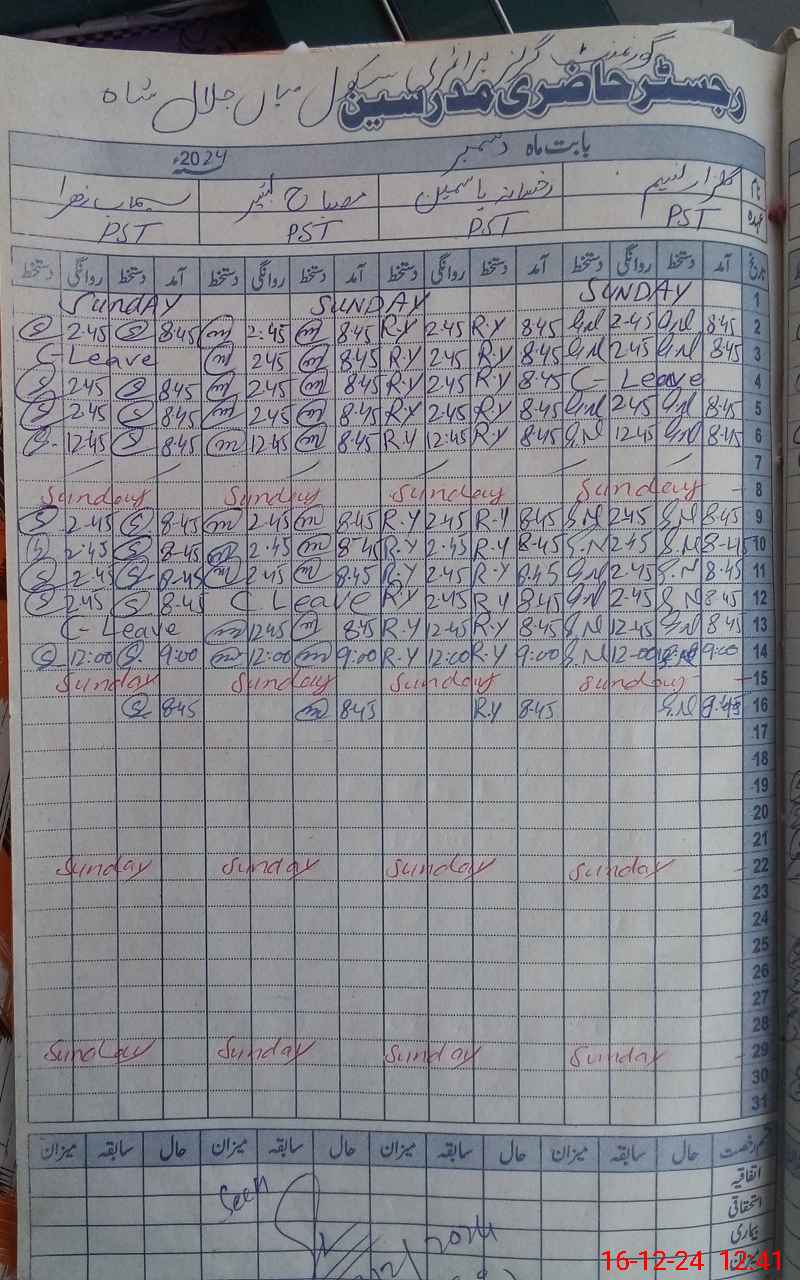 گورنمنٹ گرلز پرائمری سکول میاں جلال شاہ
رجسٹر حاضری مدرسین
بابت ماہ دسمبر 2024ء
نام گلزار نسیم رخسانہ یاسمین مصباح سیماب زہرا
عہدہ PST PST PST PST
تاریخ آمد دستخط روانگی دستخط آمد دستخط روانگی دستخط آمد دستخط روانگی دستخط آمد دستخط روانگی دستخط
1 SUNDAY SUNDAY SUNDAY
2 8:45 G.N 2:45 G.N 8:45 R.Y 2:45 R.Y 8:45 m 2:45 m 8:45 S 2:45 S
3 8:45 G.N 2:45 G.N 8:45 R.Y 2:45 R.Y 8:45 m 2:45 m C-Leave
4 C-Leave 8:45 R.Y 2:45 R.Y 8:45 m 2:45 m 8:45 S 2:45 S
5 8:45 G.N 2:45 G.N 8:45 R.Y 2:45 R.Y 8:45 m 2:45 m 8:45 S 2:45 S
6 8:45 G.N 12:45 G.N 8:45 R.Y 12:45 R.Y 8:45 m 12:45 m 8:45 S 12:45 S
7
8 Sunday Sunday Sunday Sunday
9 8:45 G.N 2:45 G.N 8:45 R.Y 2:45 R.Y 8:45 m 2:45 m 8:45 S 2:45 S
10 8:45 G.N 2:45 G.N 8:45 R.Y 2:45 R.Y 8:45 m 2:45 m 8:45 S 2:45 S
11 8:45 G.N 2:45 G.N 8:45 R.Y 2:45 R.Y 8:45 m 2:45 m 8:45 S 2:45 S
12 8:45 G.N 2:45 G.N 8:45 R.Y 2:45 R.Y C Leave 8:45 S 2:45 S
13 8:45 G.N 12:45 G.N 8:45 R.Y 12:45 R.Y 8:45 m 12:45 m C-Leave
14 9:00 G.N 12:00 G.N 9:00 R.Y 12:00 R.Y 9:00 m 12:00 m 9:00 S 12:00 S
15 Sunday Sunday Sunday Sunday
16 G.N 8:45 R.Y 8:45 m 8:45 S
17
18
19
20
21
22 Sunday Sunday Sunday Sunday
23
24
25
26
27
28
29 Sunday Sunday Sunday Sunday
30
31
قسم رخصت حال سابقہ میزان حال سابقہ میزان حال سابقہ میزان حال سابقہ میزان
اتفاقیہ
استحقاقی
بیماری
میزان
Seen
2024
16-12-24 12:41